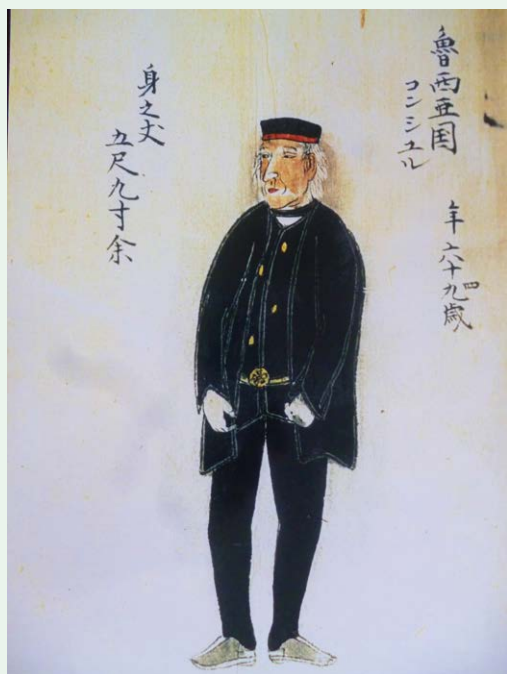 魯西亜国
コンシユル
年六十九歳
四
身之丈
五尺九寸余